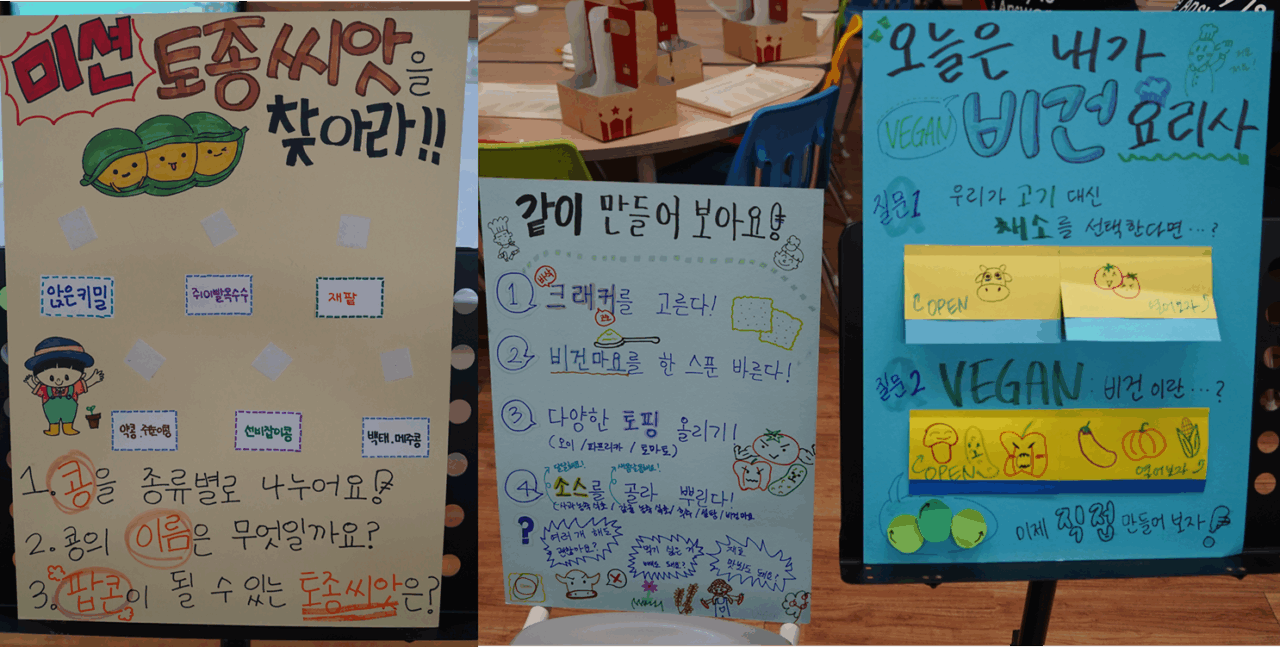 미션 토종씨앗을
찾아라!!
앉은키밀
쥐이빨옥수수
재팥
약콩, 쥐눈이콩
선비잡이콩
백태, 메주콩
1. 콩을 종류별로 나누어요!
2. 콩의 이름은 무엇일까요?
3. 팝콘이 될 수 있는 토종씨앗은?
같이 만들어 보아요!
바삭
① 크래커를 고른다!
② 비건마요를 한 스푼 바른다!
③ 다양한 토핑 올리기!
(오이 / 파프리카 / 토마토)
④ 소스를 골라 뿌린다!
?
여러개 해도
괜찮아요?
먹기 싫은 거
빼도 돼요?
맛봐도 돼요?
오늘은 내가
VEGAN 비건 요리사
질문1 우리가 고기 대신
채소를 선택한다면…?
OPEN
열어보자
질문2 VEGAN: 비건 이란…?
OPEN
열어보자
이제 직접 만들어 보자!